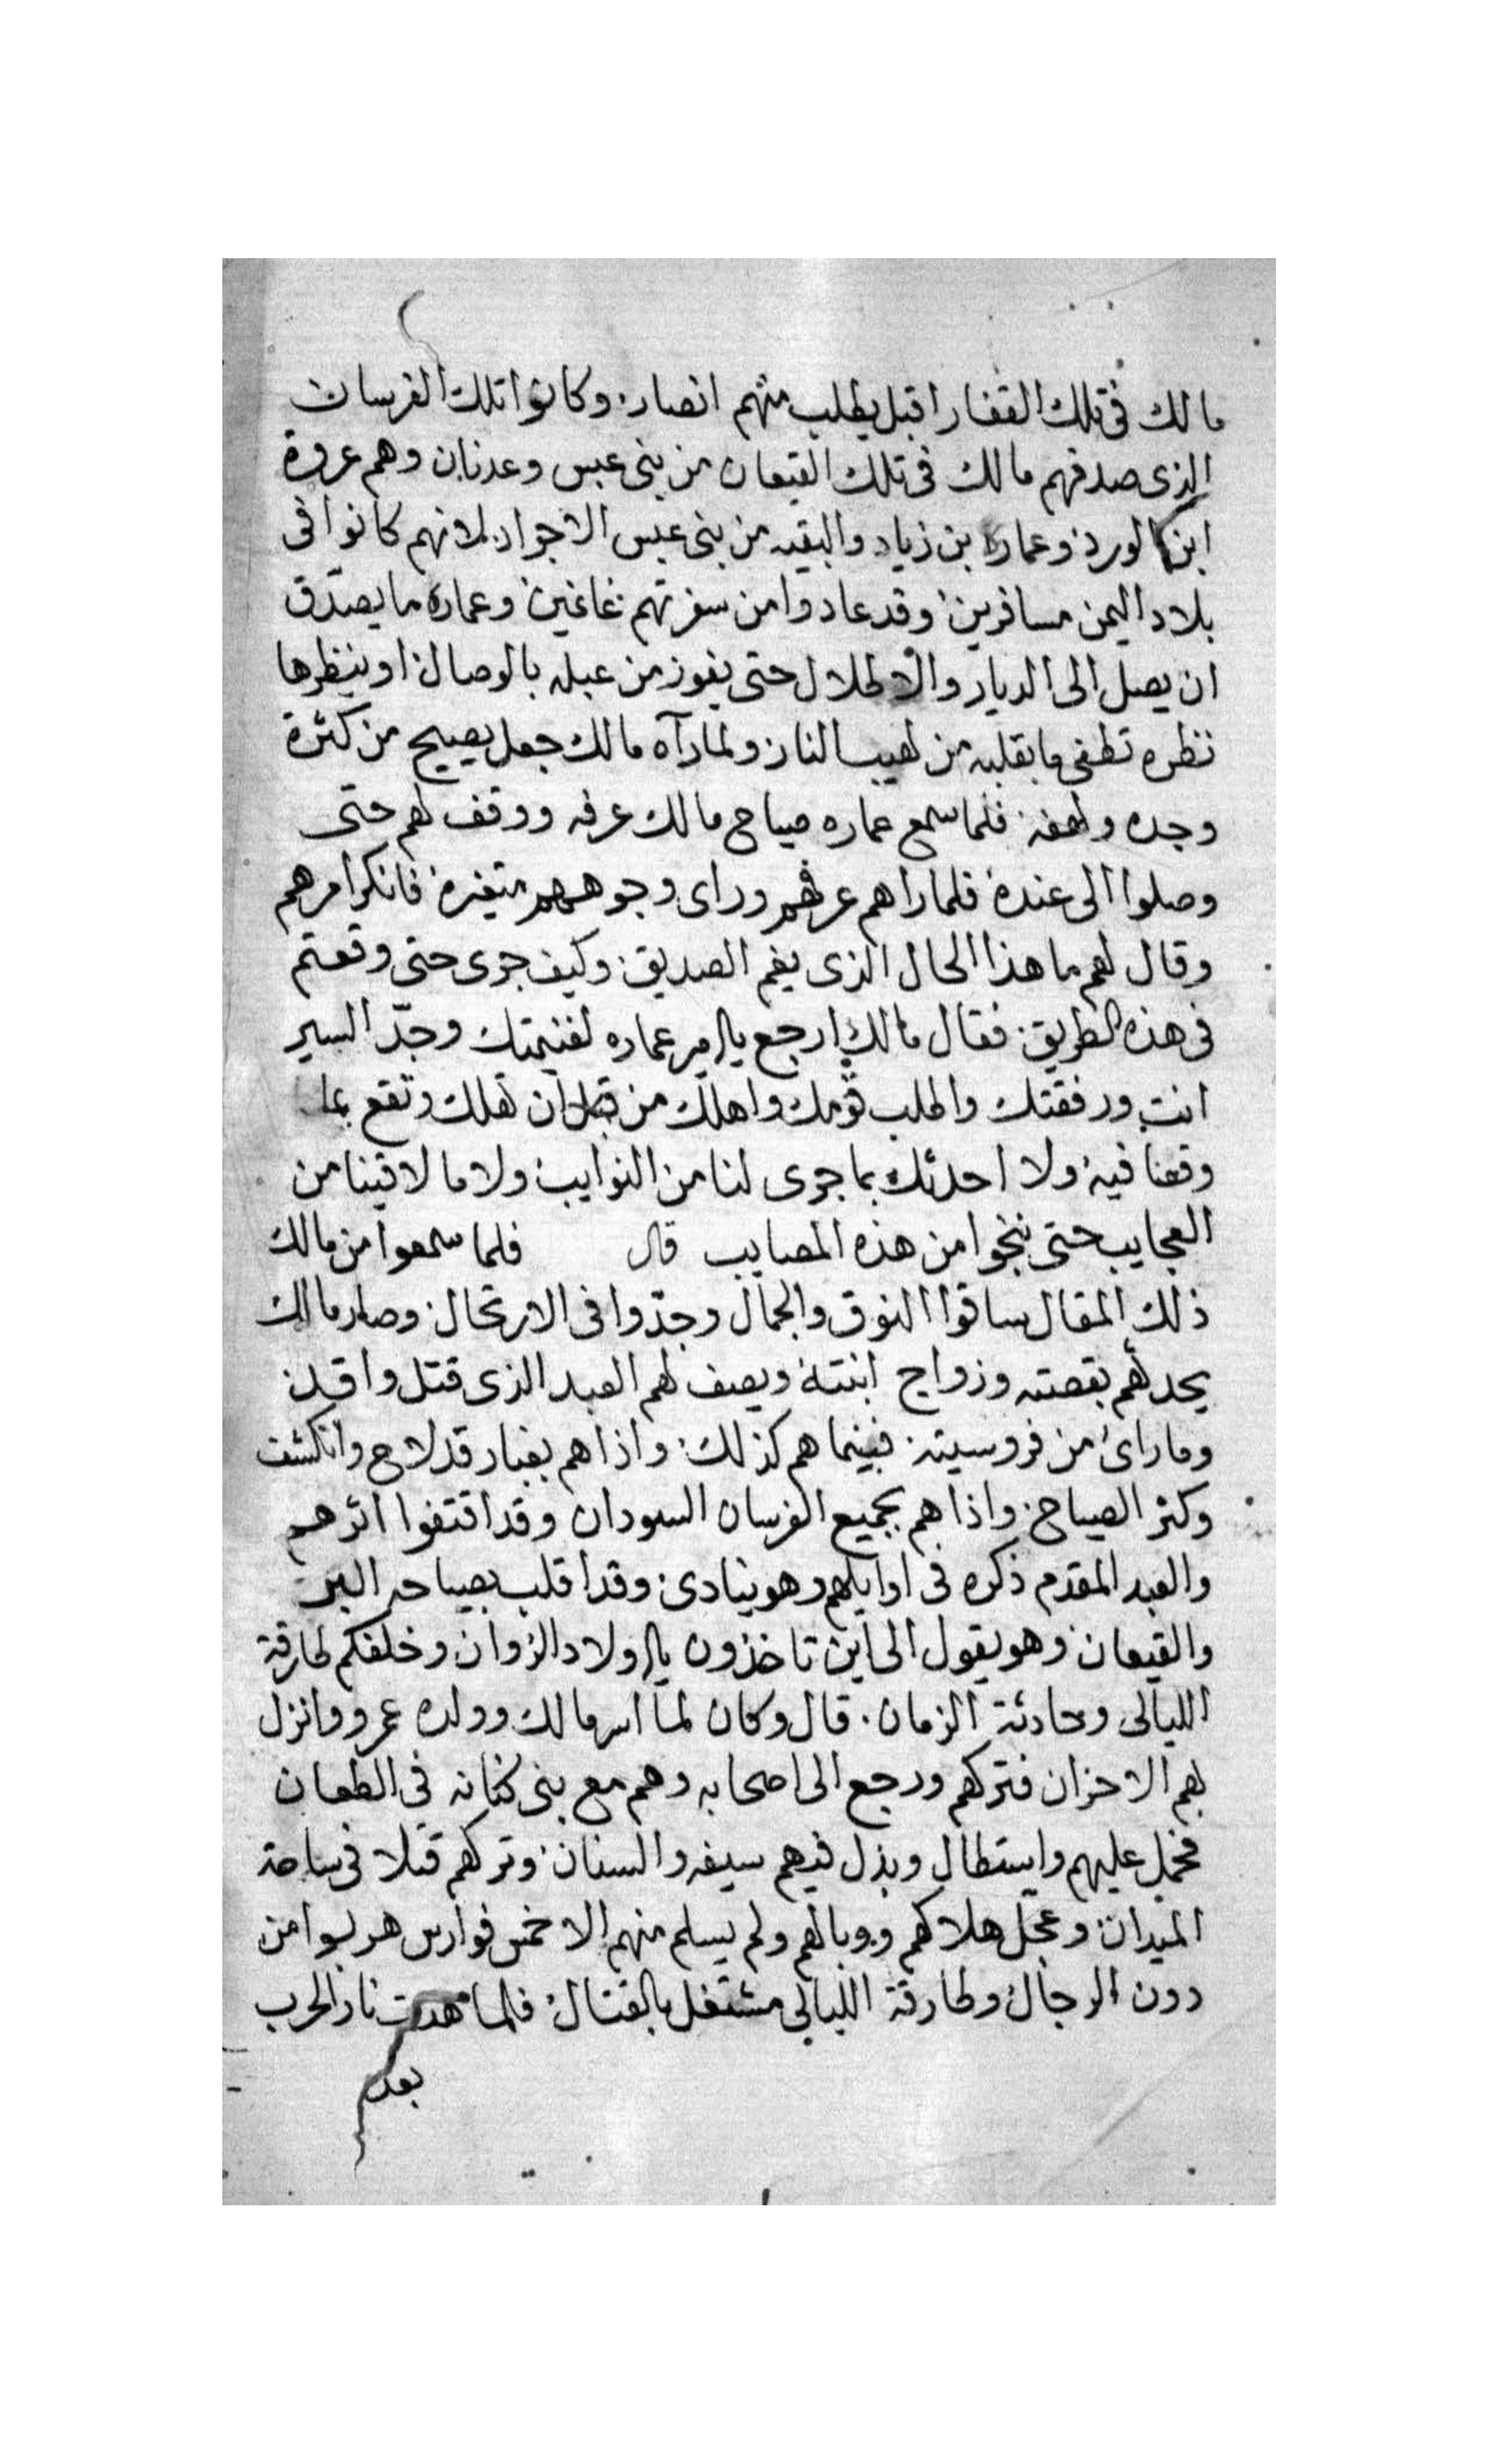 مالك فى تلك القفار اقبل يطلب منهم انصار. وكانوا تلك الفرسان
الذى صدفهم مالك فى تلك القيعان من بنى عبس وعدنان وهم عروة
ابن الورد وعماره بن زياد والبقيه من بنى عبس الاجواد. لانهم كانوا فى
بلاد اليمن مسافرين وقد عادوا من سفرتهم غانمين وعماره ما يصدّق
ان يصل الى الديار والاطلال حتى يفوز من عبله بالوصال او ينظرها
نظره تطفى ما بقلبه من لهيب النار ولما رآه مالك جعل يصيح من كثرة
وجده ولهفه فلما سمع عماره صياح مالك عرفه ووقف لهم حتى
وصلوا الى عنده فلما راهم عرفهم وراى وجوههم متغيره فانكر امرهم
وقال لهم ما هذا الحال الذى يغم الصديق وكيف جرى حتى وقعتم
فى هذه الطريق فقال مالك ارجع يا امير عماره لغنيمتك وجدّ السير
انت ورفقتك واطلب قومك واهلك من قبل ان تهلك وتقع بما
وقعنا فيه ولا احدثك بما جرى لنا من النوايب ولا ما لاقينا من
العجايب حتى ننجوا من هذه المصايب قال فلما سمعوا من مالك
ذلك المقال ساقوا النوق والجمال وجدّوا فى الارتحال وصار مالك
يحدثهم بقصته وزواج ابنته ويصف لهم العبد الذى قتل واقد
وما راى من فروسيته فبينما هم كذلك واذا هم بغبار قد لاح وانكشف
وكثر الصياح واذا هم بجميع الفرسان السودان وقد اقتفوا اثرهم
والعبد المقدم ذكره فى اوايلهم وهو ينادى وقد اقلب بصياحه البر
والقيعان وهو يقول الى اين تاخذون يا اولاد الزوان وخلفكم طارقة
الليالى وحادثة الزمان. قال وكان لما اسر مالك وولده عمرو وانزل
بهم الاحزان فتركهم ورجع الى اصحابه وهم مع بنى كنانه فى الطعان
فحمل عليهم واستطال وبذل فيهم سيفه والسنان وتركهم قتلا فى ساحة
الميدان وعجل هلاكهم ووبالهم ولم يسلم منهم الا خمس فوارس هربوا من
دون الرجال وطارقة الليالى مشتغل بالقتال فلما هدت نار الحرب
بعد